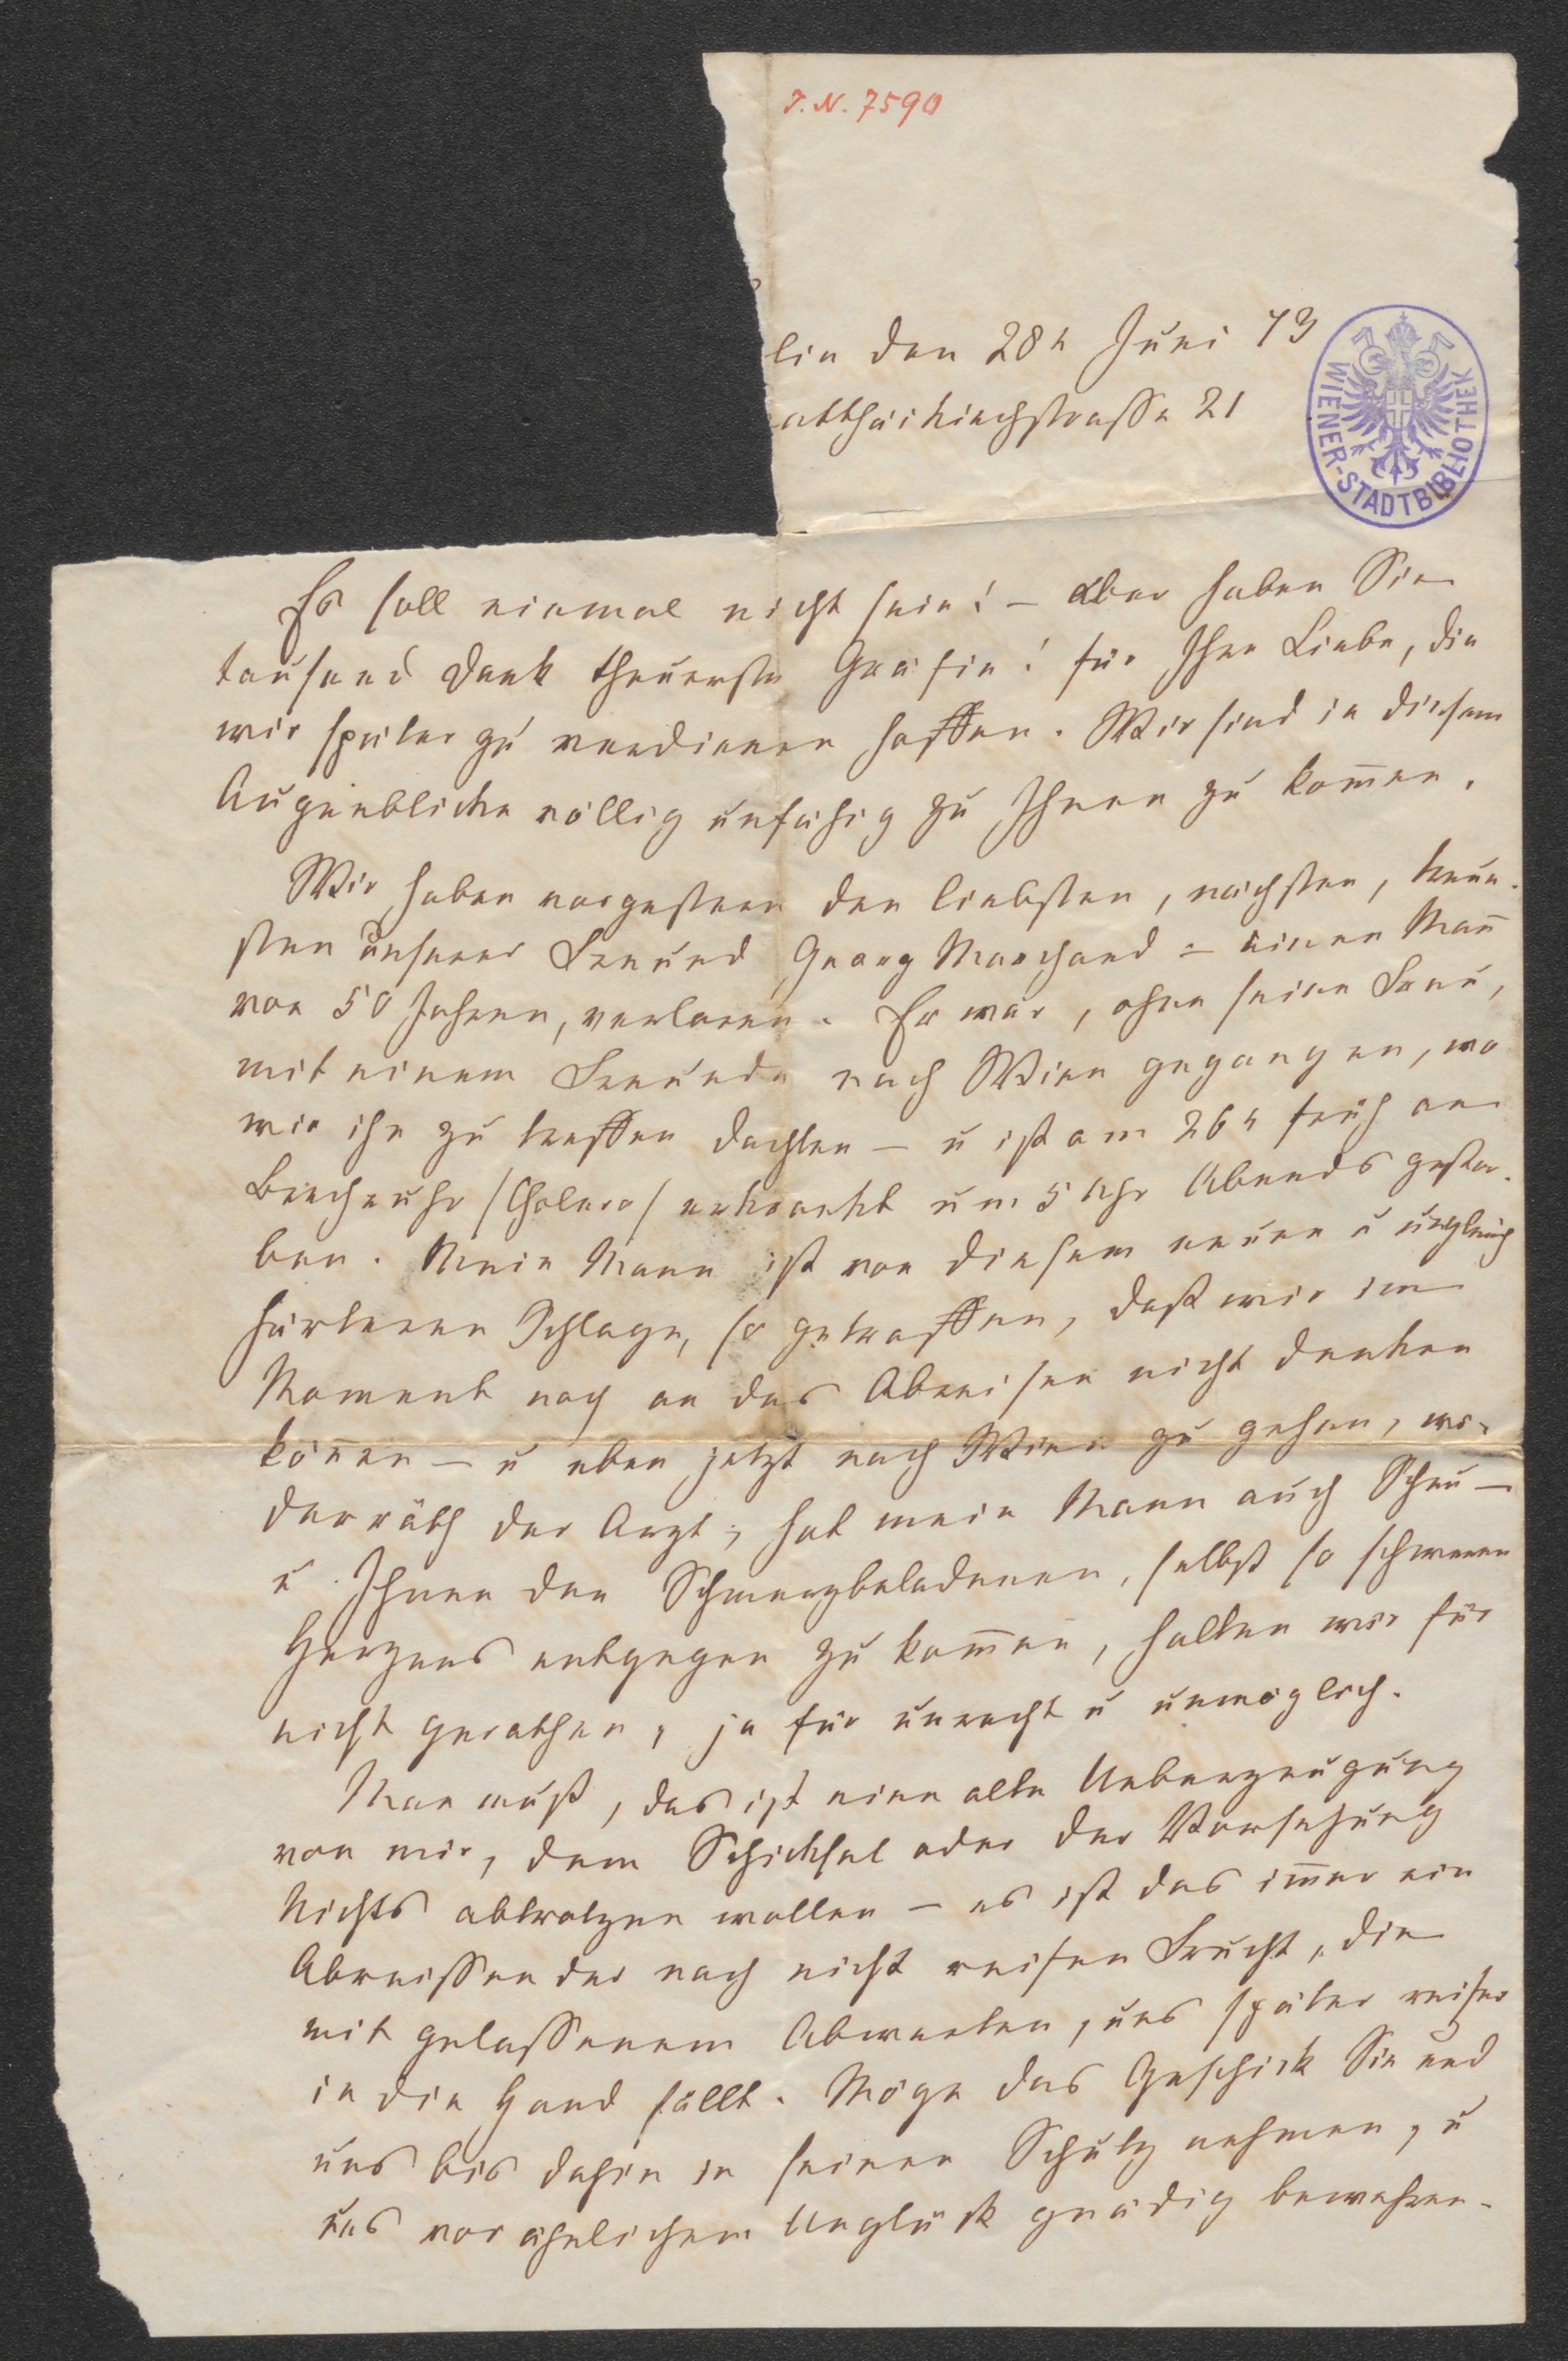 J. N. 7590
lin den 28t Juni 73
atthäikirchstrasse 21
WIENER-STADTBIBLIOTHEK
Es soll einmal nicht sein! – Aber haben Sie
tausend Dank theuerste Gräfin! für Ihre Liebe, die
wir später zu verdienen hoffen. Wir sind in diesem
Augenblicke völlig unfähig zu Ihnen zu kom̅en.
Wir haben vorgestern den liebsten, nächsten, treue-
sten unserer Freunde Georg Marchand – einen Man̅
von 50 Jahren, verloren. Er war, ohne seine Frau,
mit einem Freunde nach Wien gegangen, wo
wir ihn zu treffen dachten – u ist am 26t früh an
Brechruhr /Cholera/ erkrankt um 5 Uhr Abends gestor-
ben. Mein Mann ist von diesem neuen u ungleich
härteren Schlage, so getroffen, daß wir im
Moment noch an das Abreisen nicht denken
kön̅en – u eben jetzt nach Wien zu gehen, wi-
derräth der Arzt; hat mein Mann auch Scheu –
u Ihnen den Schmerzbeladenen, selbst so schweren
Herzens entgegen zu kom̅en, halten wir für
nicht gerathen, ja für unrecht u unmöglich.
Man muß, das ist eine alte Ueberzeugung
von mir, dem Schicksal oder der Vorsehung
Nichts abtrotzen wollen – es ist das im̅er ein
Abreissen der noch nicht reifen Frucht, die
mit gelassenem Abwarten, uns später reifer
in die Hand fällt. Möge das Geschick Sie und
uns bis dahin in seinen Schutz nehmen, u
uns vor ähnlichem Unglück gnädig bewahren.